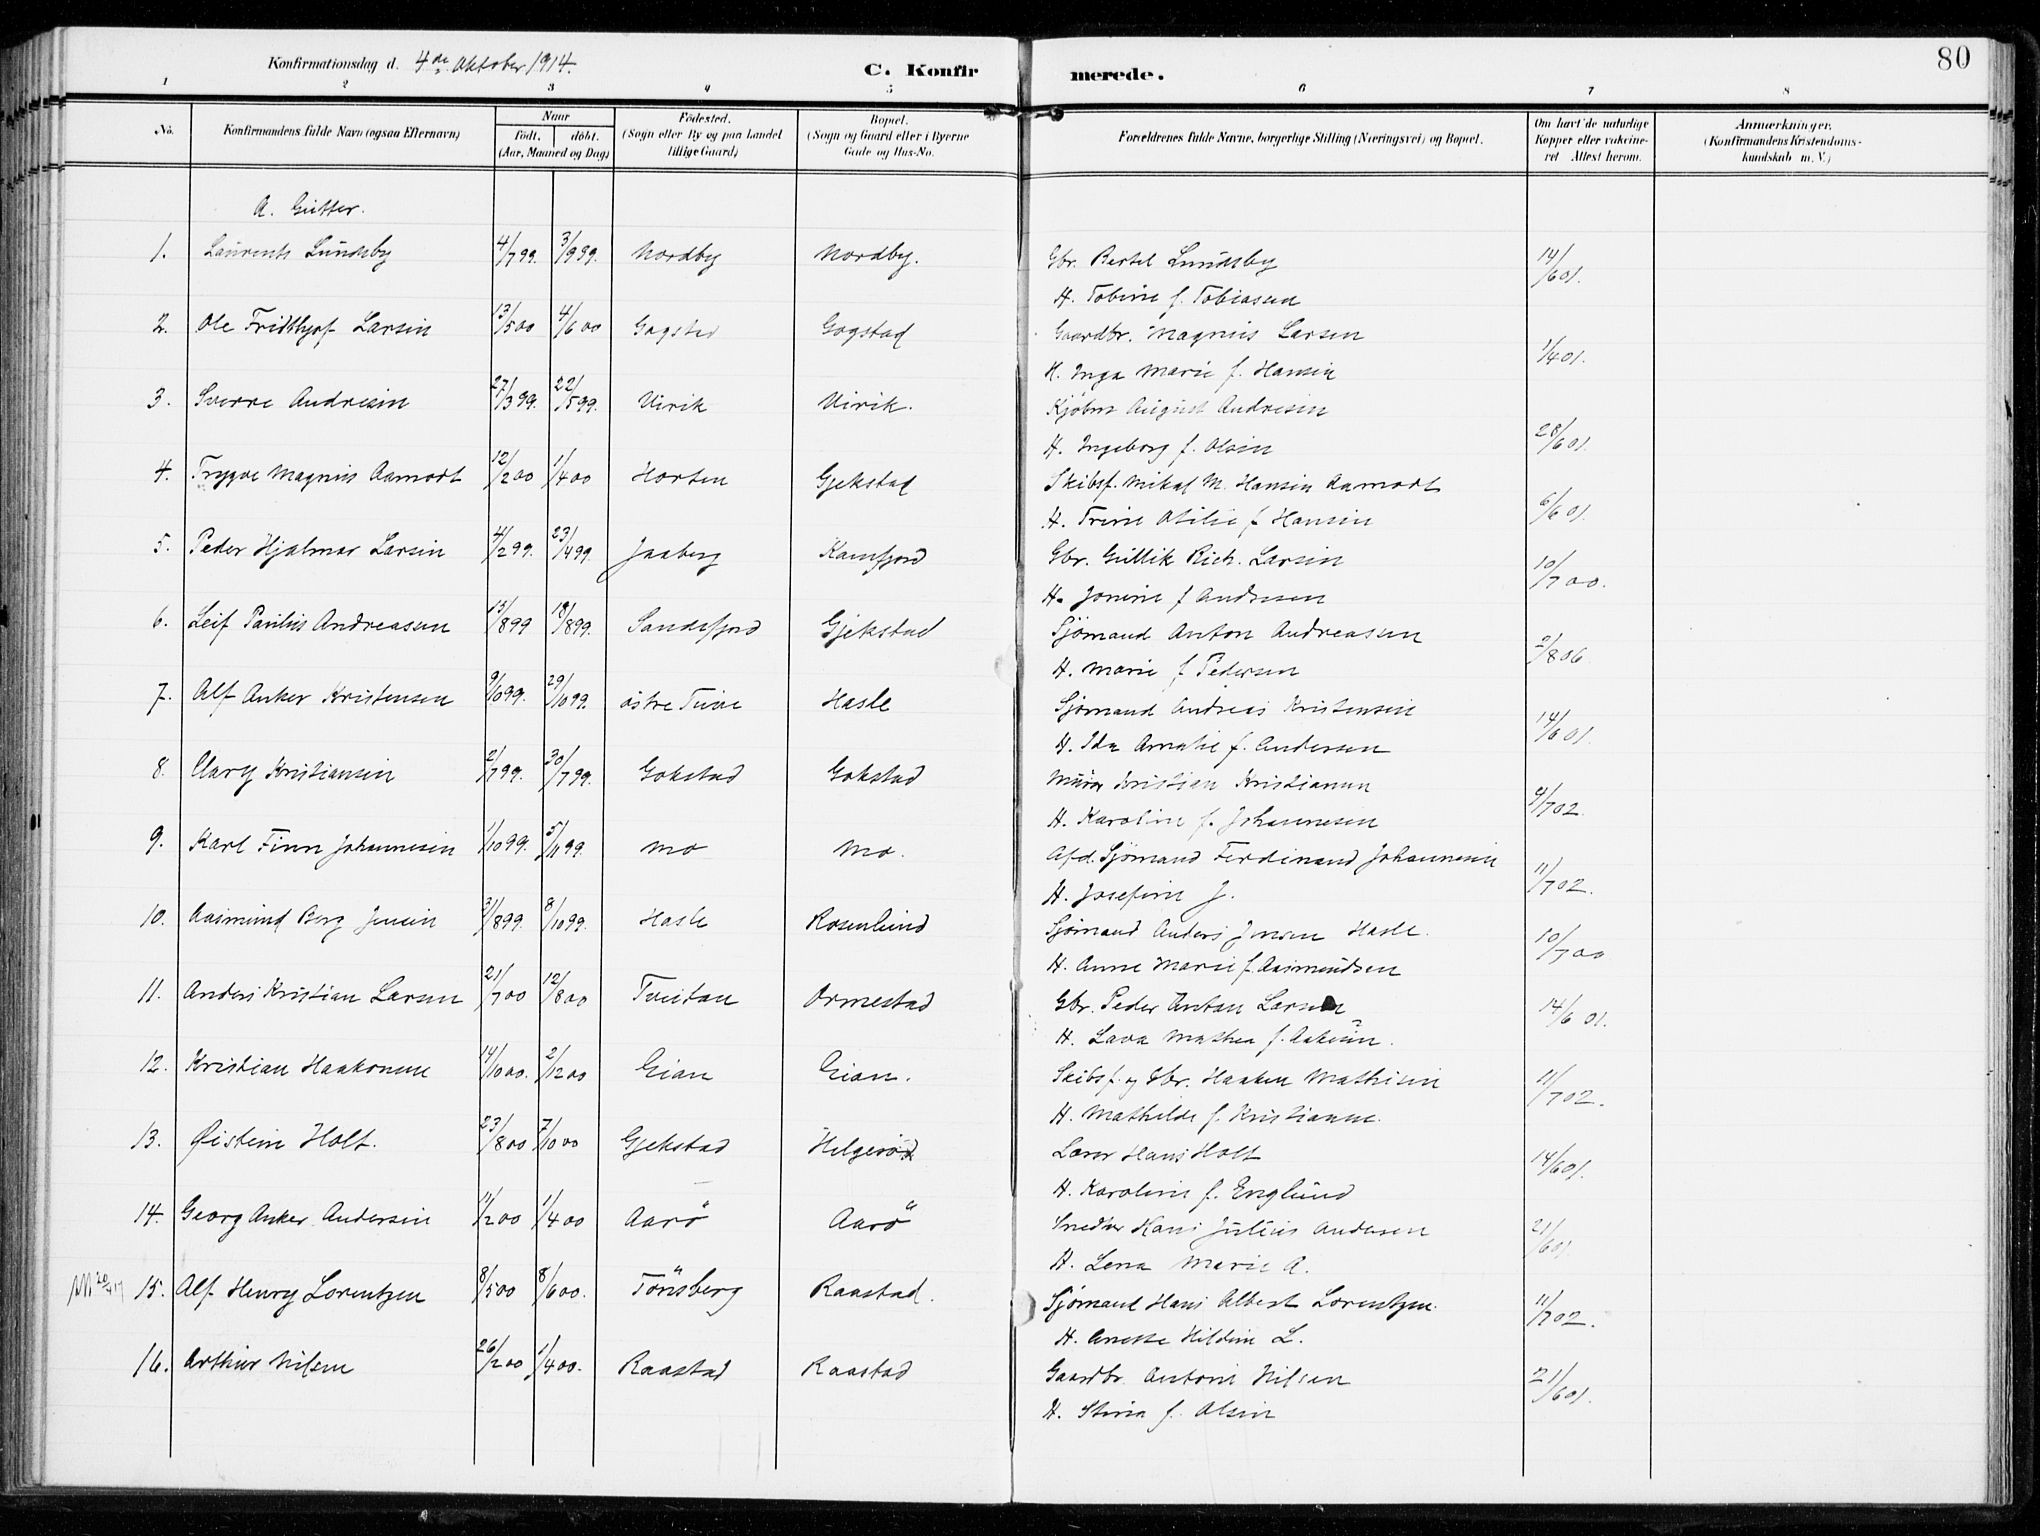 80
Konfirmationsdag d. 4de Oktober 1914.
C. Konfirmerede.
1 2 3 4 5 6 7 8
No. Konfirmandens fulde Navn (ogsaa Efternavn) Naar födt, döbt. (Aar, Maaned og Dag) Födested. (Sogn eller By og paa Landet tillige Gaard) Bopæl. (Sogn og Gaard eller i Byerne Gade og Hus-No. Forældrenes fulde Navne, borgerlige Stilling (Næringsvei) og Bopæl. Om havt de naturlige Kopper eller vakcineret Attest herom. Anmærkninger. (Konfirmandens Kristendomskundskab m. V.)
A. Gutter.
1. Laurents Lundsby 4/7 99. 3/9 99. Nordby Nordby. Gbr. Bertel Lundsby 14/6 01.
H. Tobine f. Tobiasen
2. Ole Fridthjof Larsen 13/5 00 4/6 00 Gogstad Gogstad Gaardbr. Magnus Larsen 1/4 01.
H. Inga Marie f. Hansen
3. Sverre Andresen 27/3 99. 22/5 99. Virik Virik. Kjøbm August Andresen 28/6 01.
H. Ingeborg f. Olsen
4. Trygve Magnus Aamodt 12/2 00 1/4 00 Horten Gjekstad Skibsf. Mikal M. Hansen Aamodt 6/6 01.
H. Trine Otilie f Hansen
5. Peder Hjalmar Larsen 4/2 99. 23/4 99. Jaaberg Kamfjord Gbr. Gullik Rich. Larsen 10/7 00.
H. Jonine f Andresen
6. Leif Paulus Andreassen 13/8 99 18/8 99. Sandefjord Gjekstad Sjömand Anton Andreassen 2/8 06
H. Marie f Pedersen
7. Alf Anker Kristensen 9/10 99. 29/10 99. östre Tuve Hasle Sjömand Andreas Kristensen 14/6 01.
H. Ida Amalie f. Andersen
8. Clary Kristiansen 2/7 99. 30/7 99. Gokstad Gokstad Murer Kristian Kristiansen 9/7 02.
H. Karoline f. Johannesen
9. Karl Finn Johannesen 1/10 99. 5/11 99. Mo Mo. Afd. Sjömand Ferdinand Johannesen 11/7 02.
H. Josefine J.
10. Aasmund Berg Jensen 31/8 99. 8/10 99. Hasle Rosenlund Sjömand Anders Jensen Hasle. 10/7 00
H. Anne Marie f. Aasmundsen
11. Anders Kristian Larsen 21/7 00 12/8 00 Tveitan Ormestad Gbr. Peder Anton Larsen 14/6 01.
H. Lava Mathea f.
12. Kristian Haakonsen 14/10 00. 2/12 00 Gian Gian. Skibsf. og Gbr. Haaken Mathisen 11/7 02.
H. Mathilde f. Kristiansen.
13. Øistein Holt. 23/8 00 7/10 00 Gjekstad Helgeröd Lærer Hans Holt 14/6 01.
H. Karoline f. Englund
14. Georg Anker Andersen 11/2 00 1/4 00 Aarö Aarö Smedm Hans Julius Andersen 21/6 01.
H. Lena Marie A.
15. Alf Henry Lorentzen 8/5 00 8/6 00. Tönsberg Raastad. Sjömand Hans Albert Lorentzen. 11/7 02.
H. Anette Hildine L.
16. Arthur Nilsen 26/2 00 1/4 00. Raastad Raastad Gaardbr. Antoni Nilsen 21/6 01.
H. Stina f. Olsen